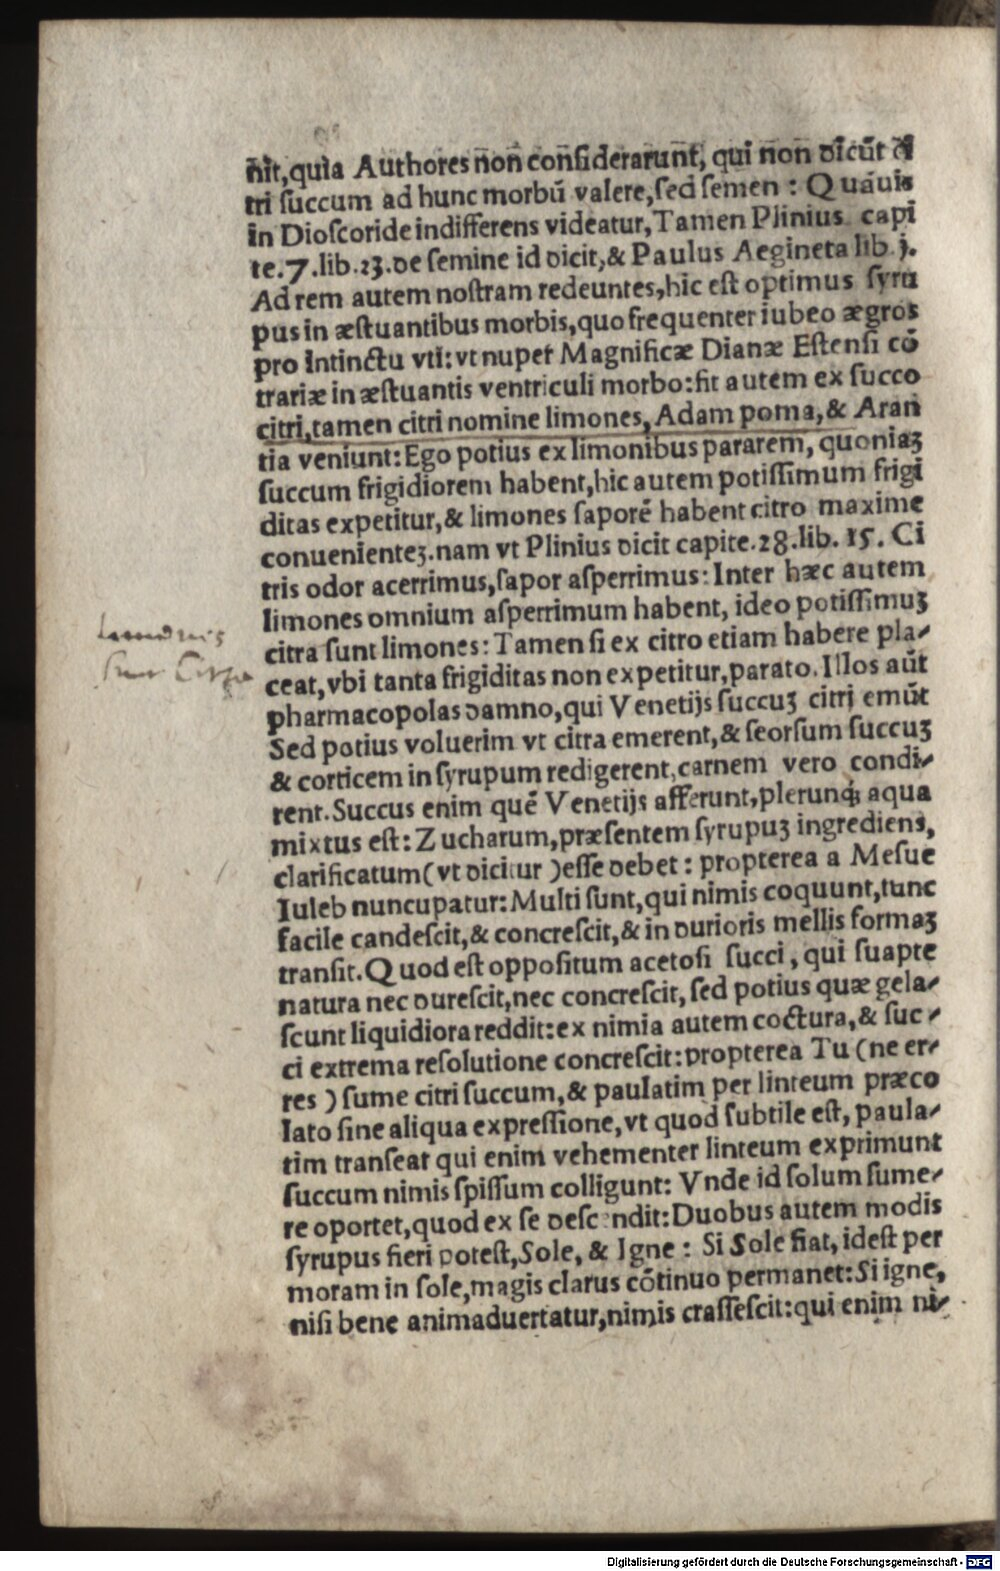 n̄it, quia Authores non considerarunt, qui non dicūt ci
tri succum ad hunc morbū valere, sed semen: Quāuis
in Dioscoride indifferens videatur, Tamen Plinius capi
te. 7. lib. 23. de semine id dicit, & Paulus Aegineta lib. j.
Ad rem autem nostram redeuntes, hic est optimus syru
pus in æstuantibus morbis, quo frequenter iubeo ægros
pro intinctu vti: vt nuper Magnificæ Dianæ Estensi cō
trariæ in æstuantis ventriculi morbo: fit autem ex succo
citri, tamen citri nomine limones, Adam poma, & Aran
tia veniunt: Ego potius ex limonibus pararem, quoniaꝫ
succum frigidiorem habent, hic autem potissimum frigi
ditas expetitur, & limones saporē habent citro maxime
conuenienteꝫ. nam vt Plinius dicit capite. 28. lib. 15. Ci
tris odor acerrimus, sapor asperrimus: Inter hæc autem
limones omnium asperrimum habent, ideo potissimuꝫ
citra sunt limones: Tamen si ex citro etiam habere pla-
ceat, vbi tanta frigiditas non expetitur, parato. Illos aūt
pharmacopolas damno, qui Venetijs succuꝫ citrj emūt
Sed potius voluerim vt citra emerent, & seorsum succuꝫ
& corticem in syrupum redigerent, carnem vero condi-
rent. Succus enim quē Venetijs afferunt, plerunq́; aqua
mixtus est: Zucharum, præsentem syrupuꝫ ingrediens,
clarificatum (vt dicitur) esse debet: propterea a Mesue
Iuleb nuncupatur: Multi sunt, qui nimis coquunt, tunc
facile candescit, & concrescit, & in durioris mellis formaꝫ
transit. Quod est oppositum acetosi succi, qui suapte
natura nec durescit, nec concrescit, sed potius quæ gela-
scunt liquidiora reddit: ex nimia autem coctura, & suc-
ci extrema resolutione concrescit: propterea Tu (ne er-
res) sume citri succum, & paulatim per linteum præco
lato sine aliqua expressione, vt quod subtile est, paula-
tim transeat qui enim vehementer linteum exprimunt
succum nimis spissum colligunt: Vnde id solum sume-
re oportet, quod ex se descendit: Duobus autem modis
syrupus fieri potest, Sole, & Igne: Si Sole fiat, idest per
moram in sole, magis clarus cōtinuo permanet: Si igne,
nisi bene animaduertatur, nimis crassescit: qui enim ni-
Limones
sunt Citra
Digitalisierung gefördert durch die Deutsche Forschungsgemeinschaft - DFG